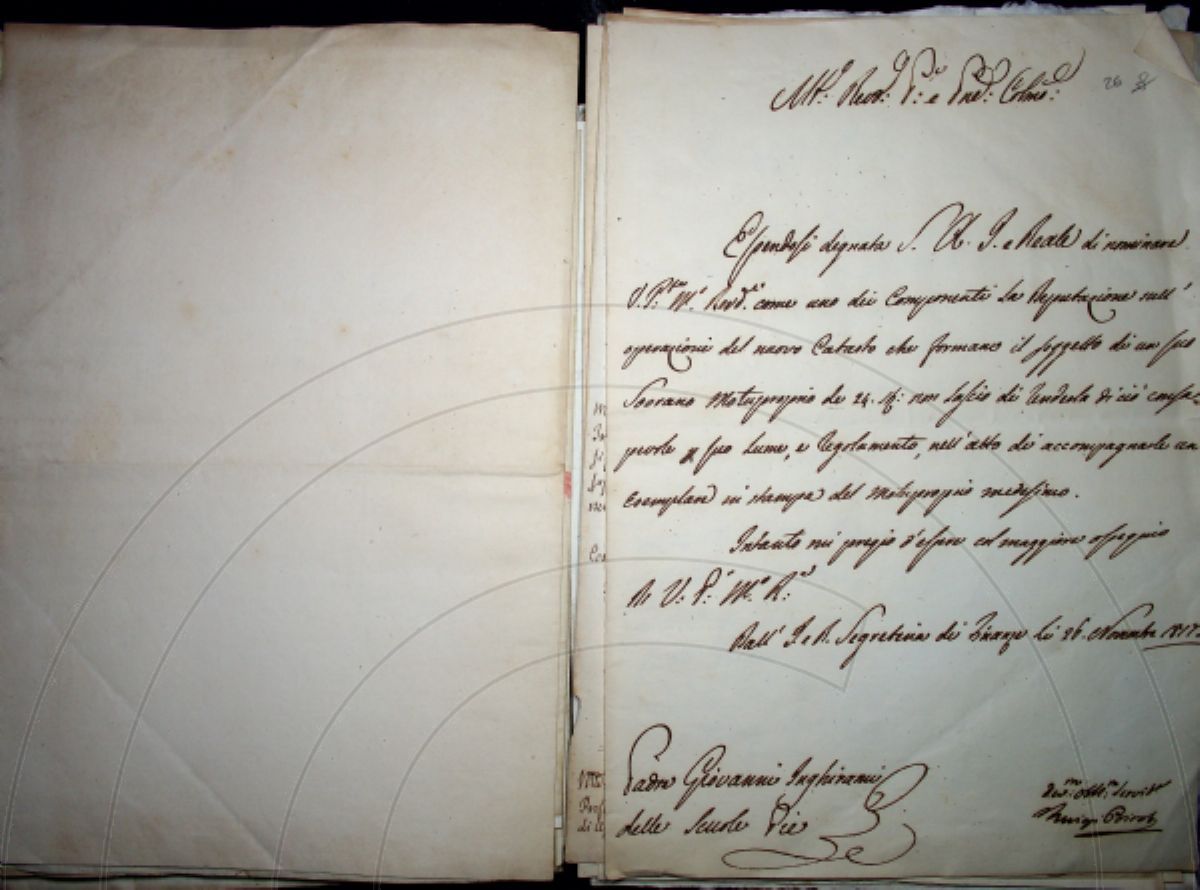 26
Mto. Revd. Pre. e Pne. Colmo.
Essendosi degnata S. A. I. e Reale di nominare
V. P. M. Revd. come uno dei Componenti la Deputazione sull'
operazioni del nuovo Catasto che formano il soggetto di un suo
Sovrano Motuproprio de 24. non lascio di renderla di ciò consa-
pevole p suo lume, e regolamento, nell'atto di accompagnarle un
Esemplare in stampa del Motuproprio medesimo.
Intanto mi pregio d'essere col maggiore ossequio
Di V. P. M. R.
Dall' I. e R. Segreteria di Finanze li 26. Novembre 1817.
Padre Giovanni Inghirami
delle Scuole Pie
Dev.mo Obb.mo Servit.